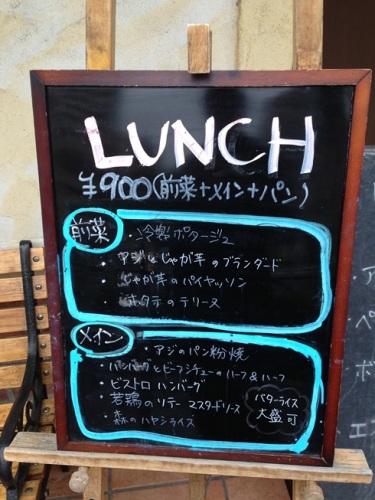 LUNCH
¥900(前菜+メイン+パン)
前菜
・冷製ポタージュ
・アジとじゃが芋のブランダード
・じゃが芋のパイヤッソン
・ホタテのテリーヌ
メイン
・アジのパン粉焼
・ハンバーグとビーフシチューのハーフ&ハーフ
・ビストロ ハンバーグ
・若鶏のソテー マスタードソース
・森のハヤシライス
バターライス
大盛 可